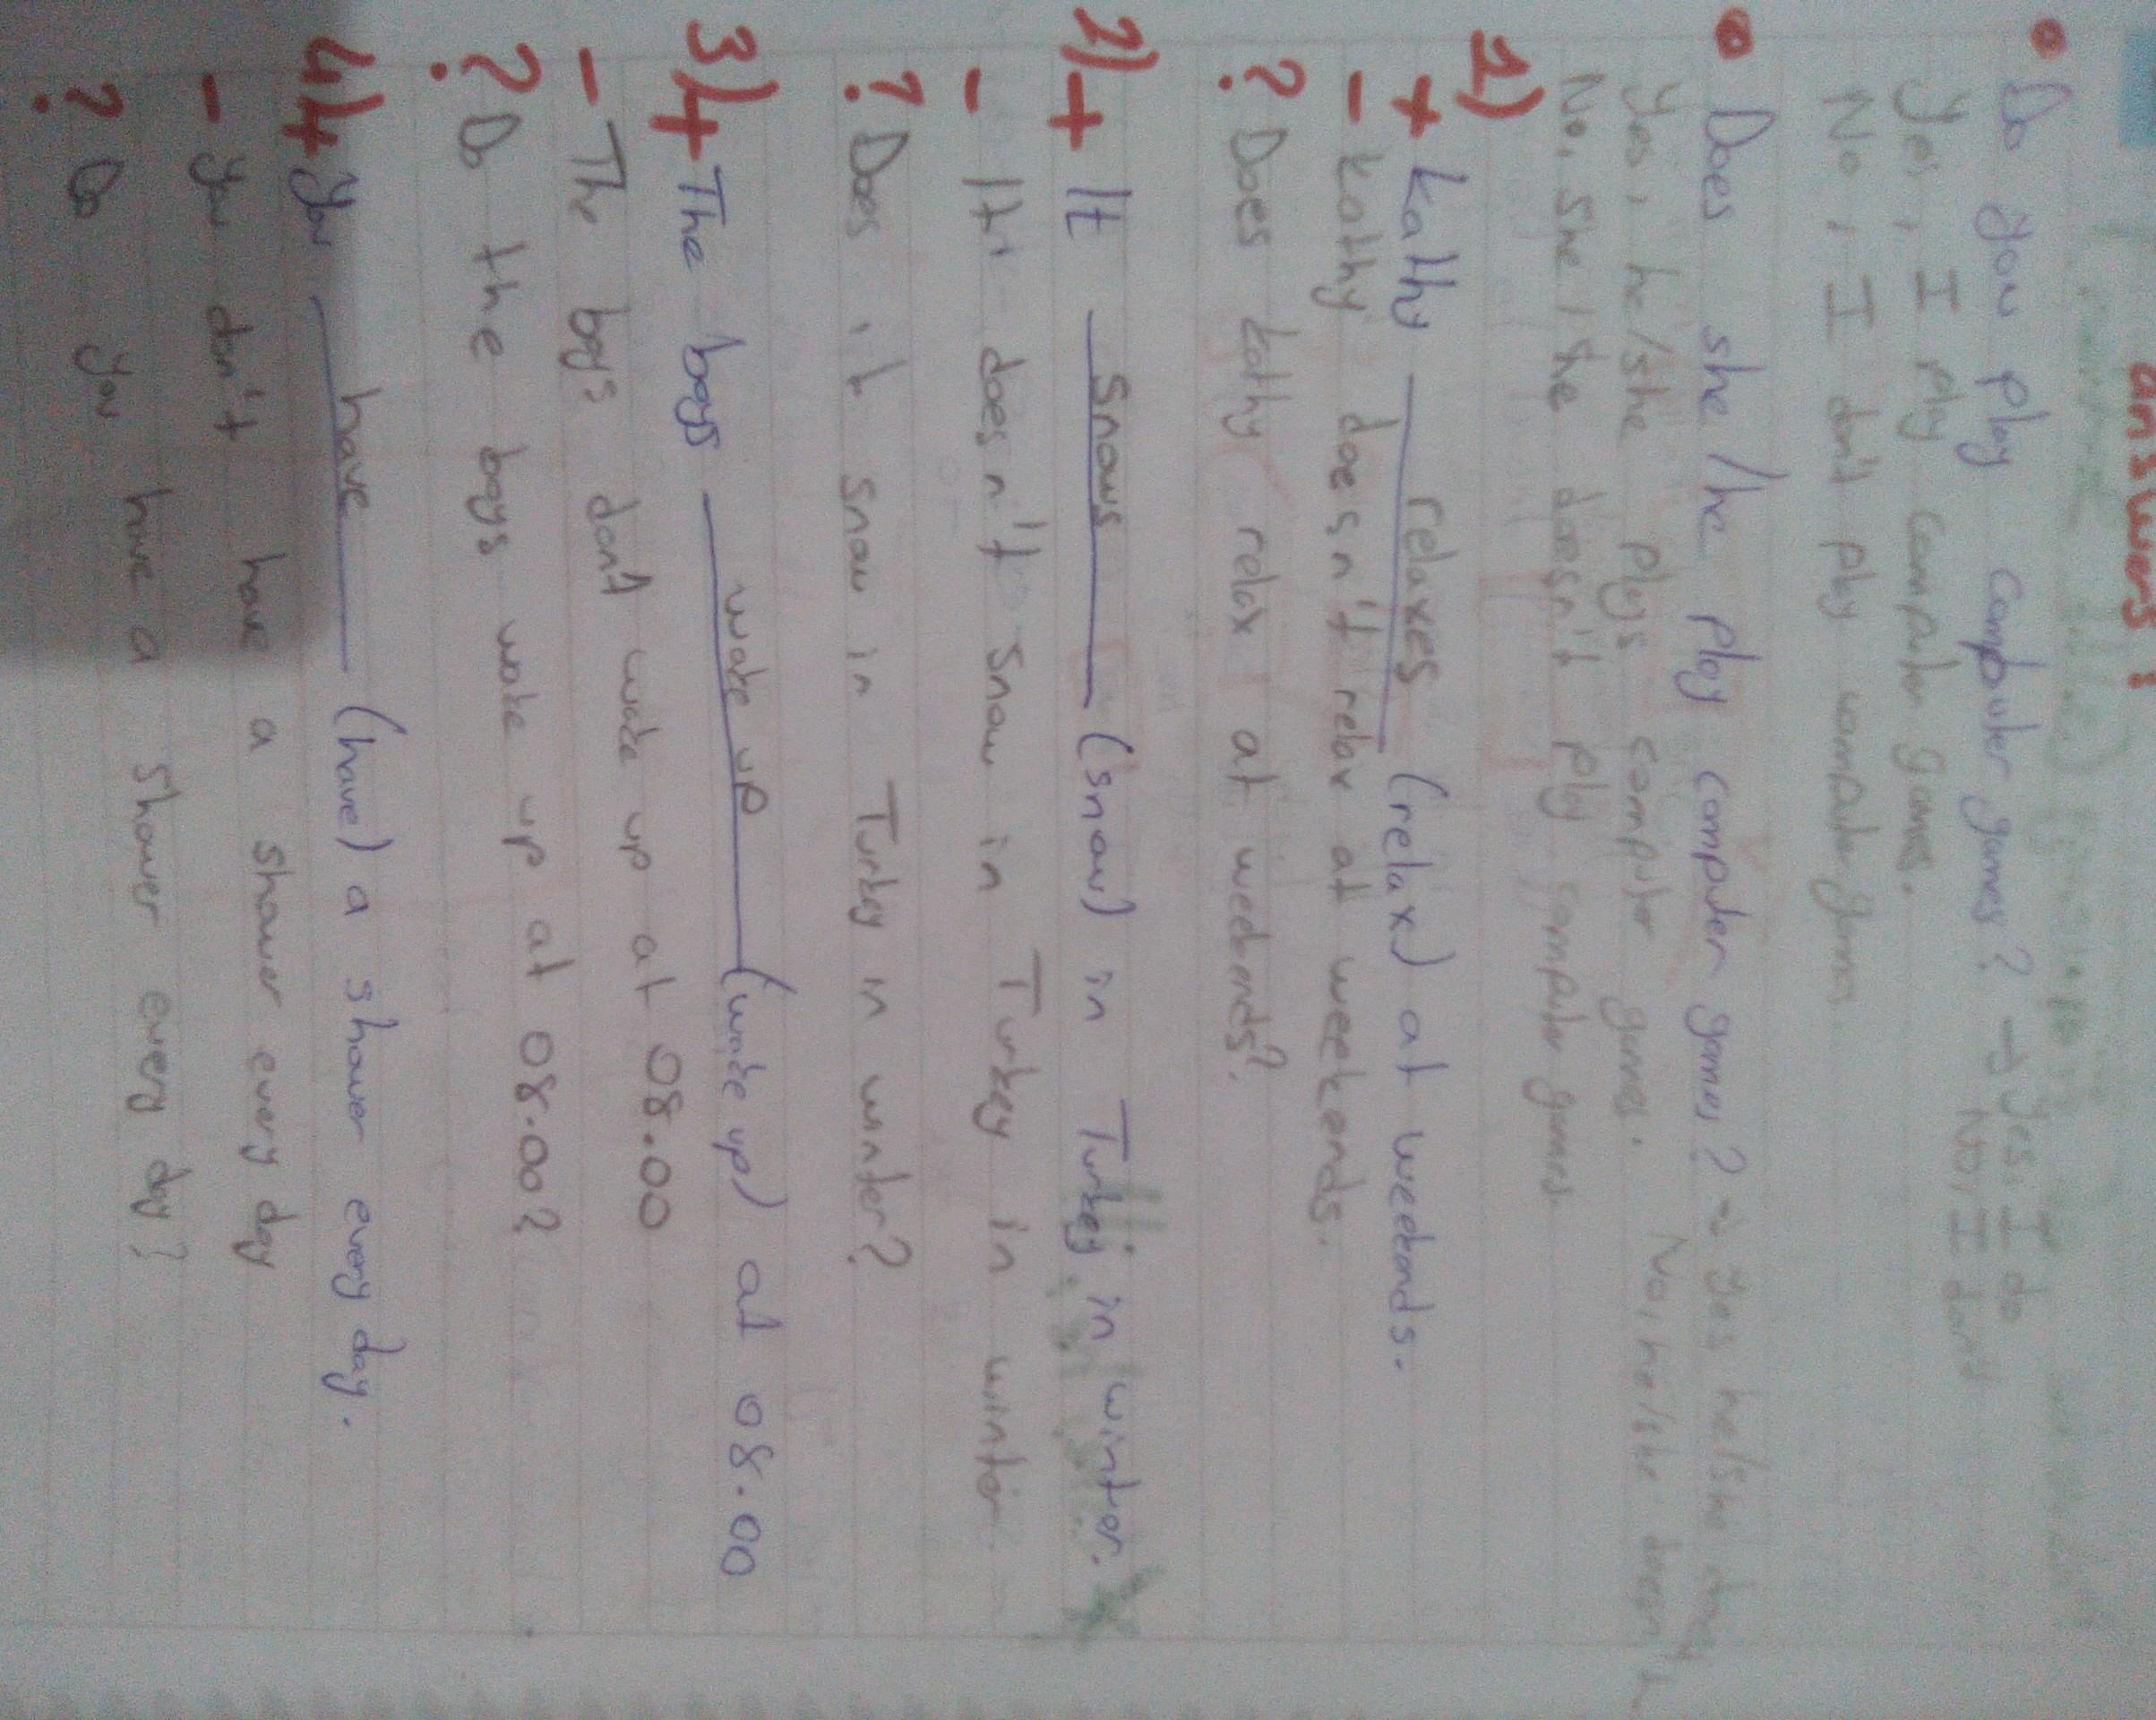 answers :
• Do you play computer games? → Yes, I do
No, I don't
Yes, I play computer games.
No, I don't play computer games.
• Does she/he play computer games? → Yes he/she does
Yes, he/she plays computer games. No, he/she doesn't
No, she/he doesn't play computer games.
1)
+ Kathy relaxes (relax) at weekends.
- Kathy doesn't relax at weekends.
? Does Kathy relax at weekends?
2)+ It snows (snow) in Turkey in winter.
- It doesn't snow in Turkey in winter
? Does it snow in Turkey in winter?
3)+ The boys wake up (wake up) at 08.00
- The boys don't wake up at 08.00
? Do the boys wake up at 08.00?
4)+ You have (have) a shower every day.
- You don't have a shower every day
? Do you have a shower every day?